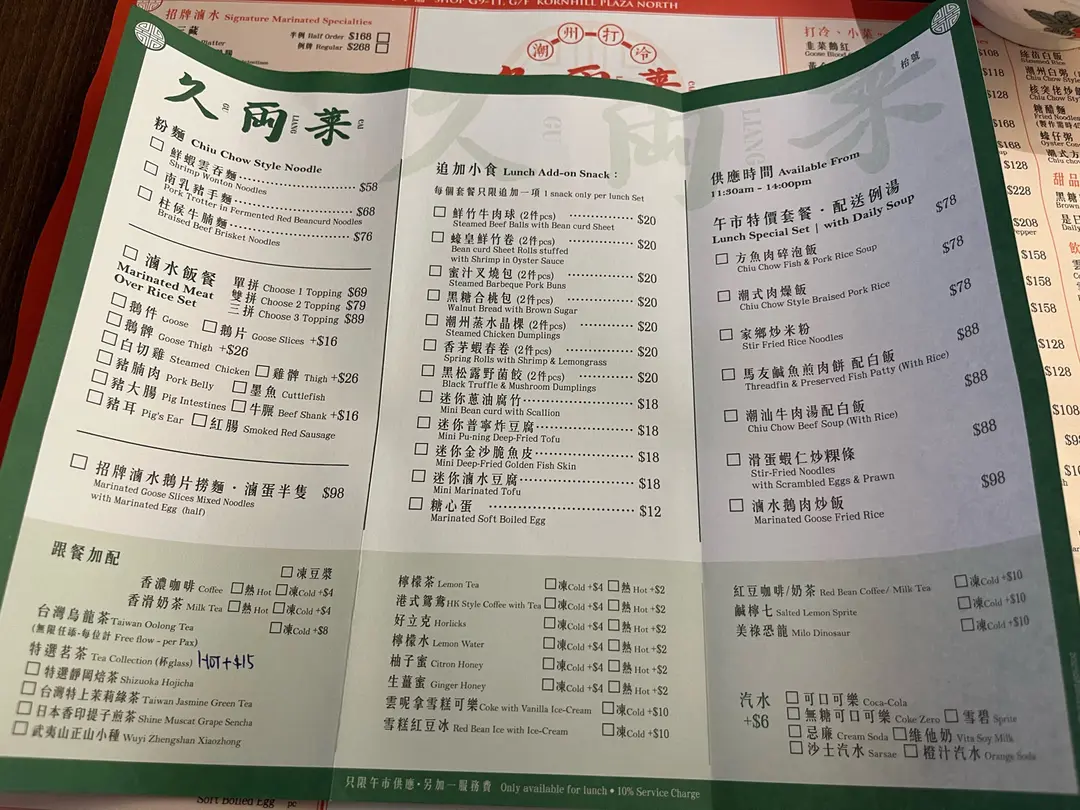 SHOP G9-11, G/F KORNHILL PLAZA NORTH
招牌滷水 Signature Marinated Specialties
半例 Half Order $168
例牌 Regular $268
潮州打冷
打冷、小菜
韭菜鵝紅
Goose Blood
久兩菜
GU LIANG CAI
粉麵 Chiu Chow Style Noodle
鮮蝦雲吞麵 $58
Shrimp Wonton Noodles
南乳豬手麵 $68
Pork Trotter in Fermented Red Beancurd Noodles
柱候牛腩麵 $76
Braised Beef Brisket Noodles
滷水飯餐
Marinated Meat
Over Rice Set
單拼 Choose 1 Topping $69
雙拼 Choose 2 Topping $79
三拼 Choose 3 Topping $89
鵝件 Goose 鵝片 Goose Slices +$16
鵝髀 Goose Thigh +$26
白切雞 Steamed Chicken 雞髀 Thigh +$26
豬腩肉 Pork Belly 墨魚 Cuttlefish
豬大腸 Pig Intestines 牛𦟌 Beef Shank +$16
豬耳 Pig's Ear 紅腸 Smoked Red Sausage
招牌滷水鵝片撈麵・滷蛋半隻 $98
Marinated Goose Slices Mixed Noodles
with Marinated Egg (half)
追加小食 Lunch Add-on Snack :
每個套餐只限追加一項 1 snack only per lunch Set
鮮竹牛肉球 (2件pcs) $20
Steamed Beef Balls with Bean curd Sheet
蠔皇鮮竹卷 (2件pcs) $20
Bean curd Sheet Rolls stuffed
with Shrimp in Oyster Sauce
蜜汁叉燒包 (2件pcs) $20
Steamed Barbeque Pork Buns
黑糖合桃包 (2件pcs) $20
Walnut Bread with Brown Sugar
潮州蒸水晶粿 (2件pcs) $20
Steamed Chicken Dumplings
香茅蝦春卷 (2件pcs) $20
Spring Rolls with Shrimp & Lemongrass
黑松露野菌餃 (2件pcs) $20
Black Truffle & Mushroom Dumplings
迷你蔥油腐竹 $18
Mini Bean curd with Scallion
迷你普寧炸豆腐 $18
Mini Pu-ning Deep-Fried Tofu
迷你金沙脆魚皮 $18
Mini Deep-Fried Golden Fish Skin
迷你滷水豆腐 $18
Mini Marinated Tofu
糖心蛋 $12
Marinated Soft Boiled Egg
枱號
供應時間 Available From
11:30am - 14:00pm
午市特價套餐・配送例湯
Lunch Special Set | with Daily Soup
方魚肉碎泡飯 $78
Chiu Chow Fish & Pork Rice Soup
潮式肉燥飯 $78
Chiu Chow Style Braised Pork Rice
家鄉炒米粉 $78
Stir Fried Rice Noodles
馬友鹹魚煎肉餅 配白飯 $88
Threadfin & Preserved Fish Patty (With Rice)
潮汕牛肉湯配白飯 $88
Chiu Chow Beef Soup (With Rice)
滑蛋蝦仁炒粿條 $88
Stir-Fried Noodles
with Scrambled Eggs & Prawn
滷水鵝肉炒飯 $98
Marinated Goose Fried Rice
跟餐加配
凍豆漿
香濃咖啡 Coffee 熱Hot 凍Cold +$4
香滑奶茶 Milk Tea 熱Hot 凍Cold +$4
台灣烏龍茶 Taiwan Oolong Tea 凍Cold +$8
(無限任添-每位計 Free flow - per Pax)
特選茗茶 Tea Collection (杯glass) HOT+$15
特選靜岡焙茶 Shizuoka Hojicha
台灣特上茉莉綠茶 Taiwan Jasmine Green Tea
日本香印提子煎茶 Shine Muscat Grape Sencha
武夷山正山小種 Wuyi Zhengshan Xiaozhong
檸檬茶 Lemon Tea 凍Cold +$4 熱Hot +$2
港式鴛鴦 HK Style Coffee with Tea 凍Cold +$4 熱Hot +$2
好立克 Horlicks 凍Cold +$4 熱Hot +$2
檸檬水 Lemon Water 凍Cold +$4 熱Hot +$2
柚子蜜 Citron Honey 凍Cold +$4 熱Hot +$2
生薑蜜 Ginger Honey 凍Cold +$4 熱Hot +$2
雲呢拿雪糕可樂 Coke with Vanilla Ice-Cream 凍Cold +$10
雪糕紅豆冰 Red Bean Ice with Ice-Cream 凍Cold +$10
紅豆咖啡/奶茶 Red Bean Coffee/ Milk Tea 凍Cold +$10
鹹檸七 Salted Lemon Sprite 凍Cold +$10
美祿恐龍 Milo Dinosaur 凍Cold +$10
汽水 +$6
可口可樂 Coca-Cola
無糖可口可樂 Coke Zero 雪碧 Sprite
忌廉 Cream Soda 維他奶 Vita Soy Milk
沙士汽水 Sarsae 橙汁汽水 Orange Soda
只限午市供應・另加一服務費 Only available for lunch • 10% Service Charge
Soft Boiled Egg pc